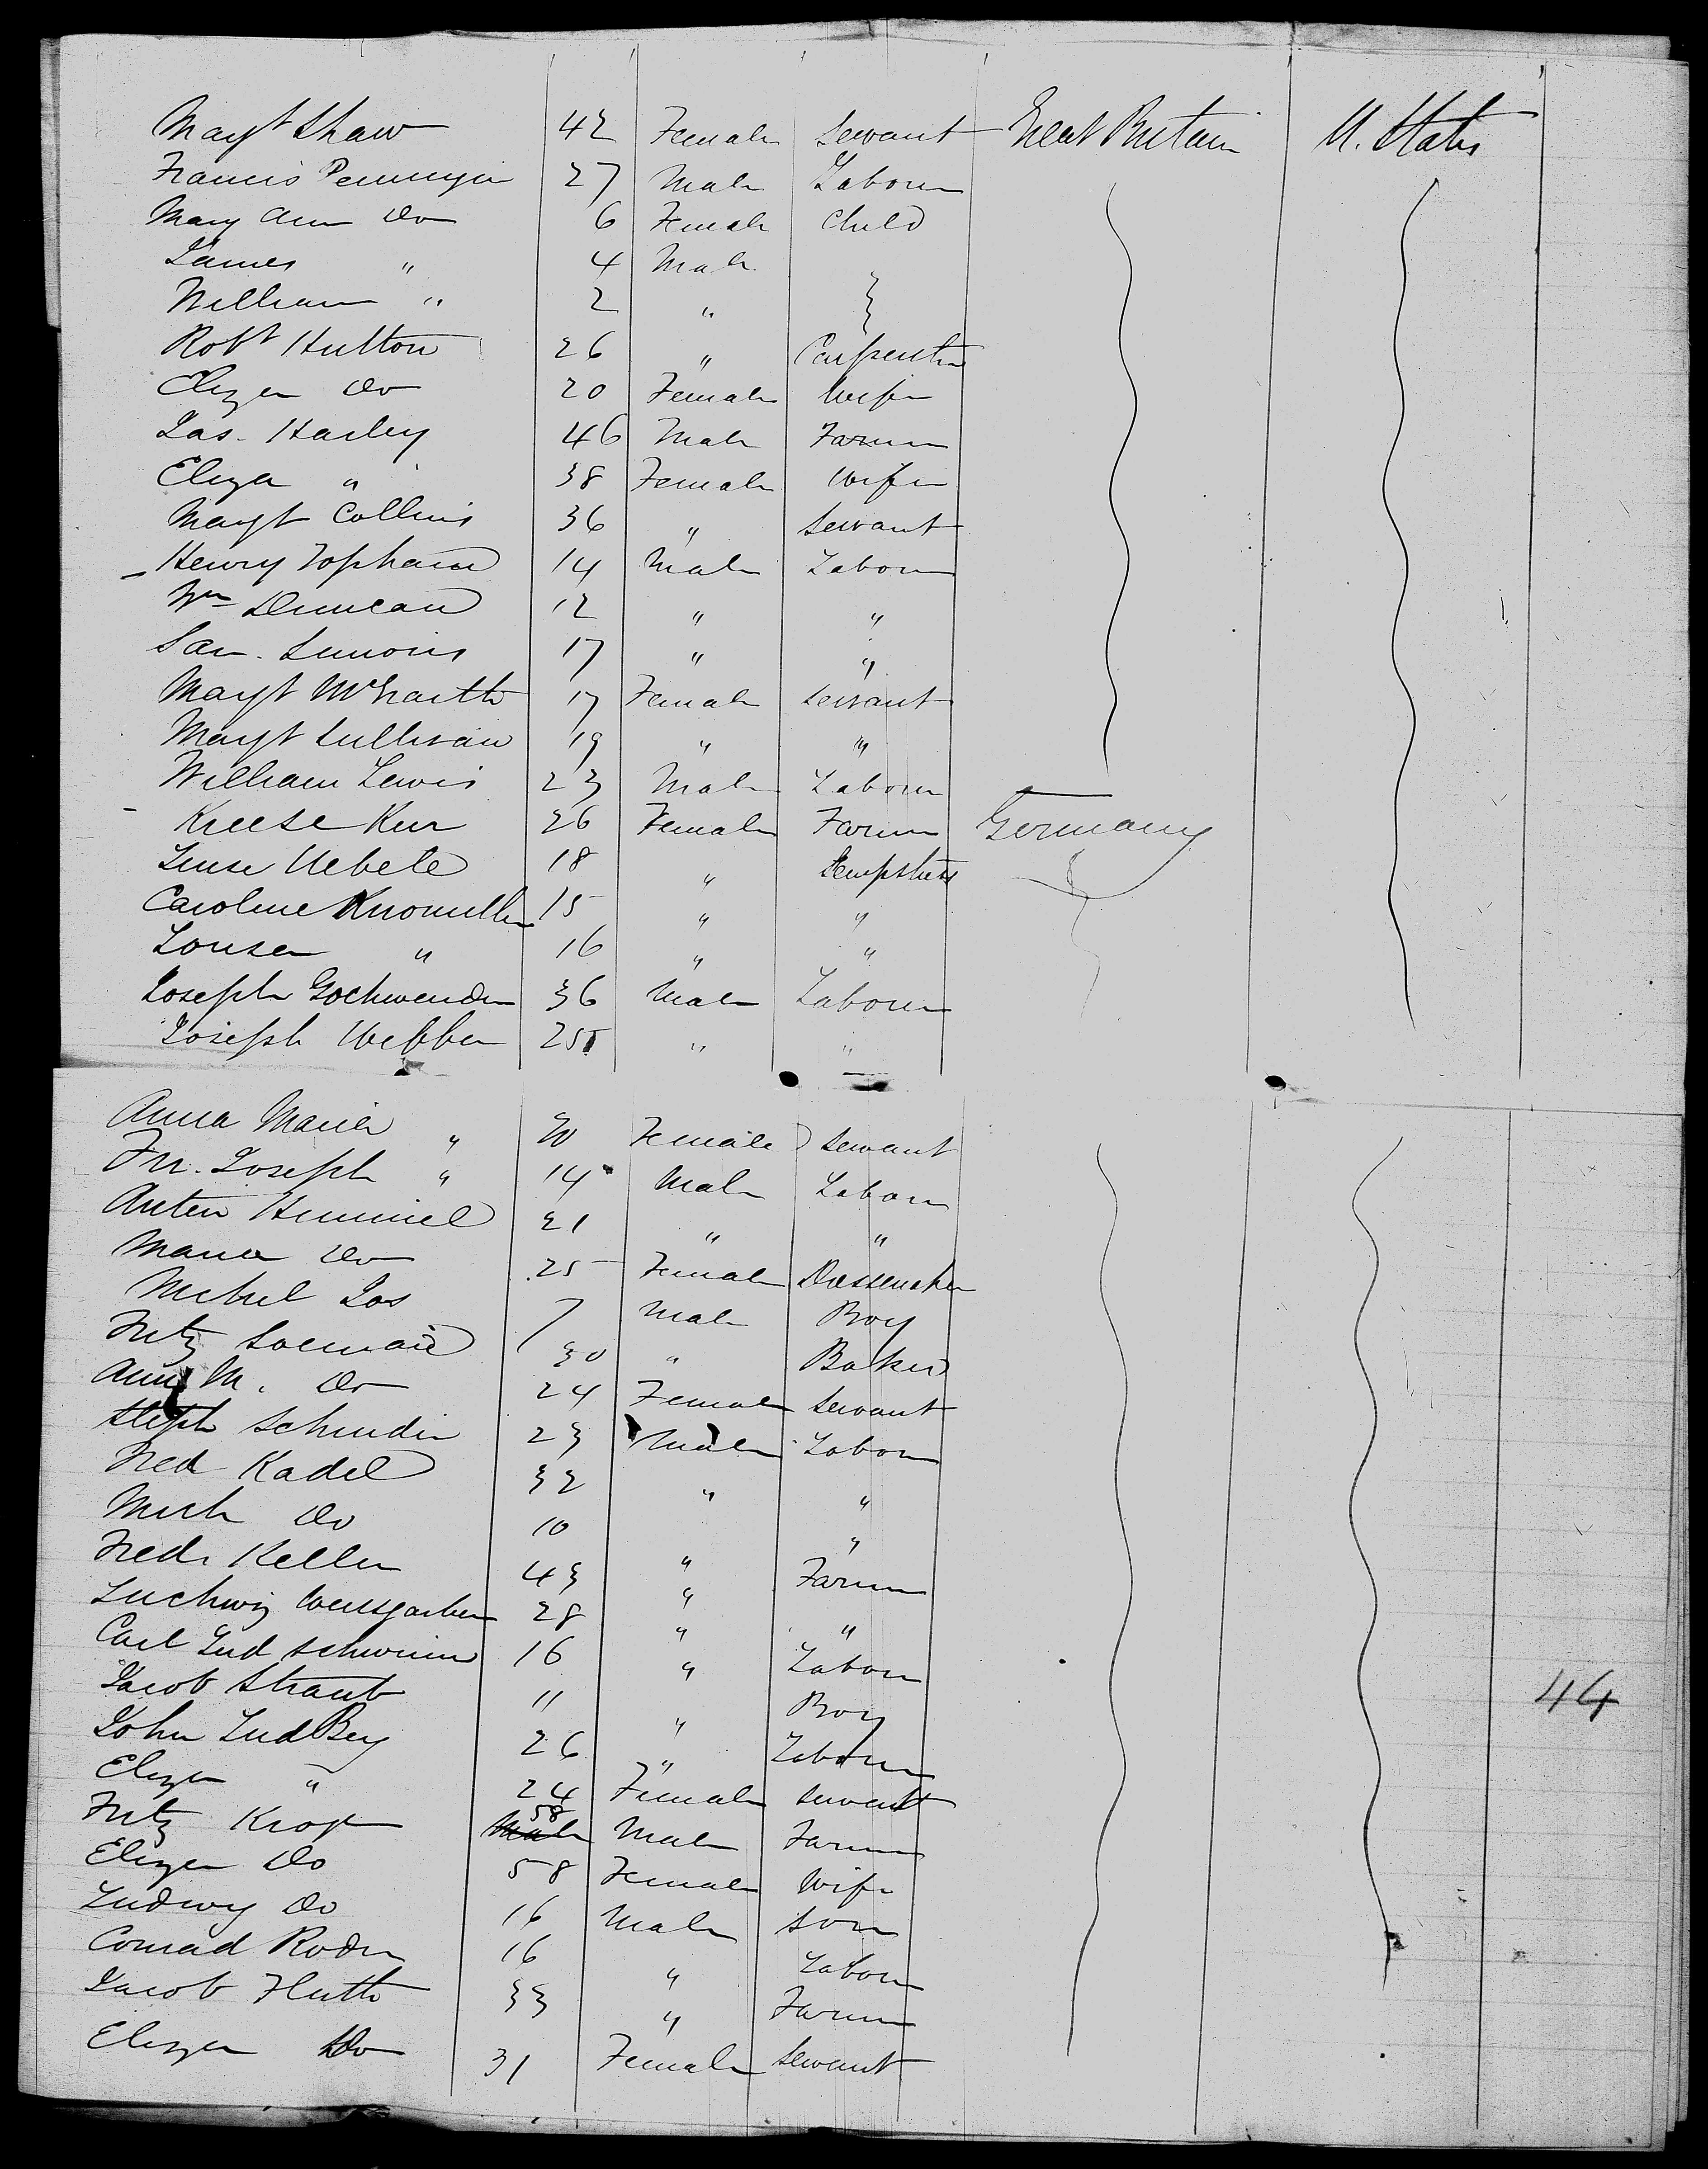 Magt Shaw 42 Female Servant Great Britain U. States
Francis 27 Male Laborer
Mary Ann Do 6 Female Child
James " 4 Male
William " 2 "
Robt Hutton 26 " Carpenter
Eliza Do 20 Female Wife
Jas. Harley 46 Male Farmer
Eliza " 38 Female Wife
Magt Collins 36 " Servant
Henry Topham 14 Male Laborer
Wm Duncan 12 " "
17 " "
Magt McGrath 17 Female Servant
Magt Sullivan 19 " "
William Lewis 23 Male Laborer
Kreese 26 Female Farmer Germany
Uebele 18 " Sempstress
Caroline 15 " "
Louisa " 16 " "
Joseph Gschwender 36 Male Laborer
Joseph Webber 25 " "
Anna Maria " Female Servant
Fr. Joseph " 14 Male Laborer
Anton Himmel 21 " "
Maria Do 25 Female Dressmaker
Jos 7 Male Boy
Fritz 30 " Baker
Ann M. Do 24 Female Servant
Steph Schindin 23 Male Labor
Fred Kadel 32 " "
Mich Do 10 " "
Fredr Keller 43 " Farmer
Luchwig 28 " "
Carl Lud Schwinn 16 " Labor
Jacob Straub 11 " Boy
John Lud Bey 26 " Laborer
Eliza " 24 Female Servant
Fritz Krop 58 Male Farmer
Eliza Do 58 Female Wife
Ludwig Do 16 Male Son
Conrad Roder 16 " Laborer
Jacob Huth 33 " Farmer
Eliza Do 31 Female Servant
44